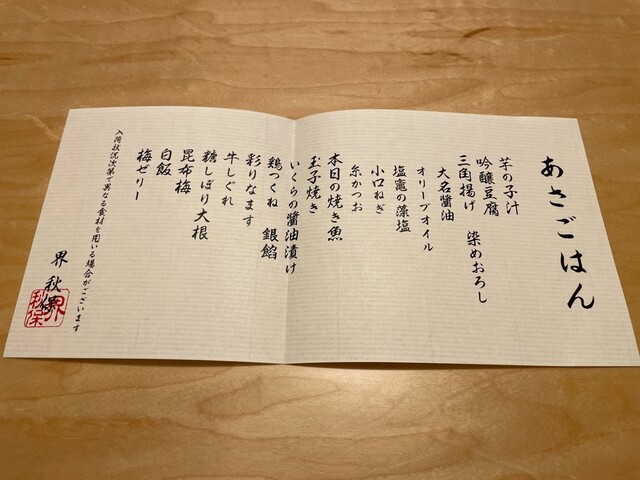 あさごはん
芋の子汁
吟醸豆腐
三角揚げ 染めおろし
大名醤油
オリーブオイル
塩竈の藻塩
小口ねぎ
糸かつお
本日の焼き魚
玉子焼き
いくらの醤油漬け
鶏つくね 銀餡
彩りなます
牛しぐれ
糖しぼり大根
昆布梅
白飯
梅ゼリー
入荷状況次第で異なる食材を用いる場合がございます
界 秋保
界秋保